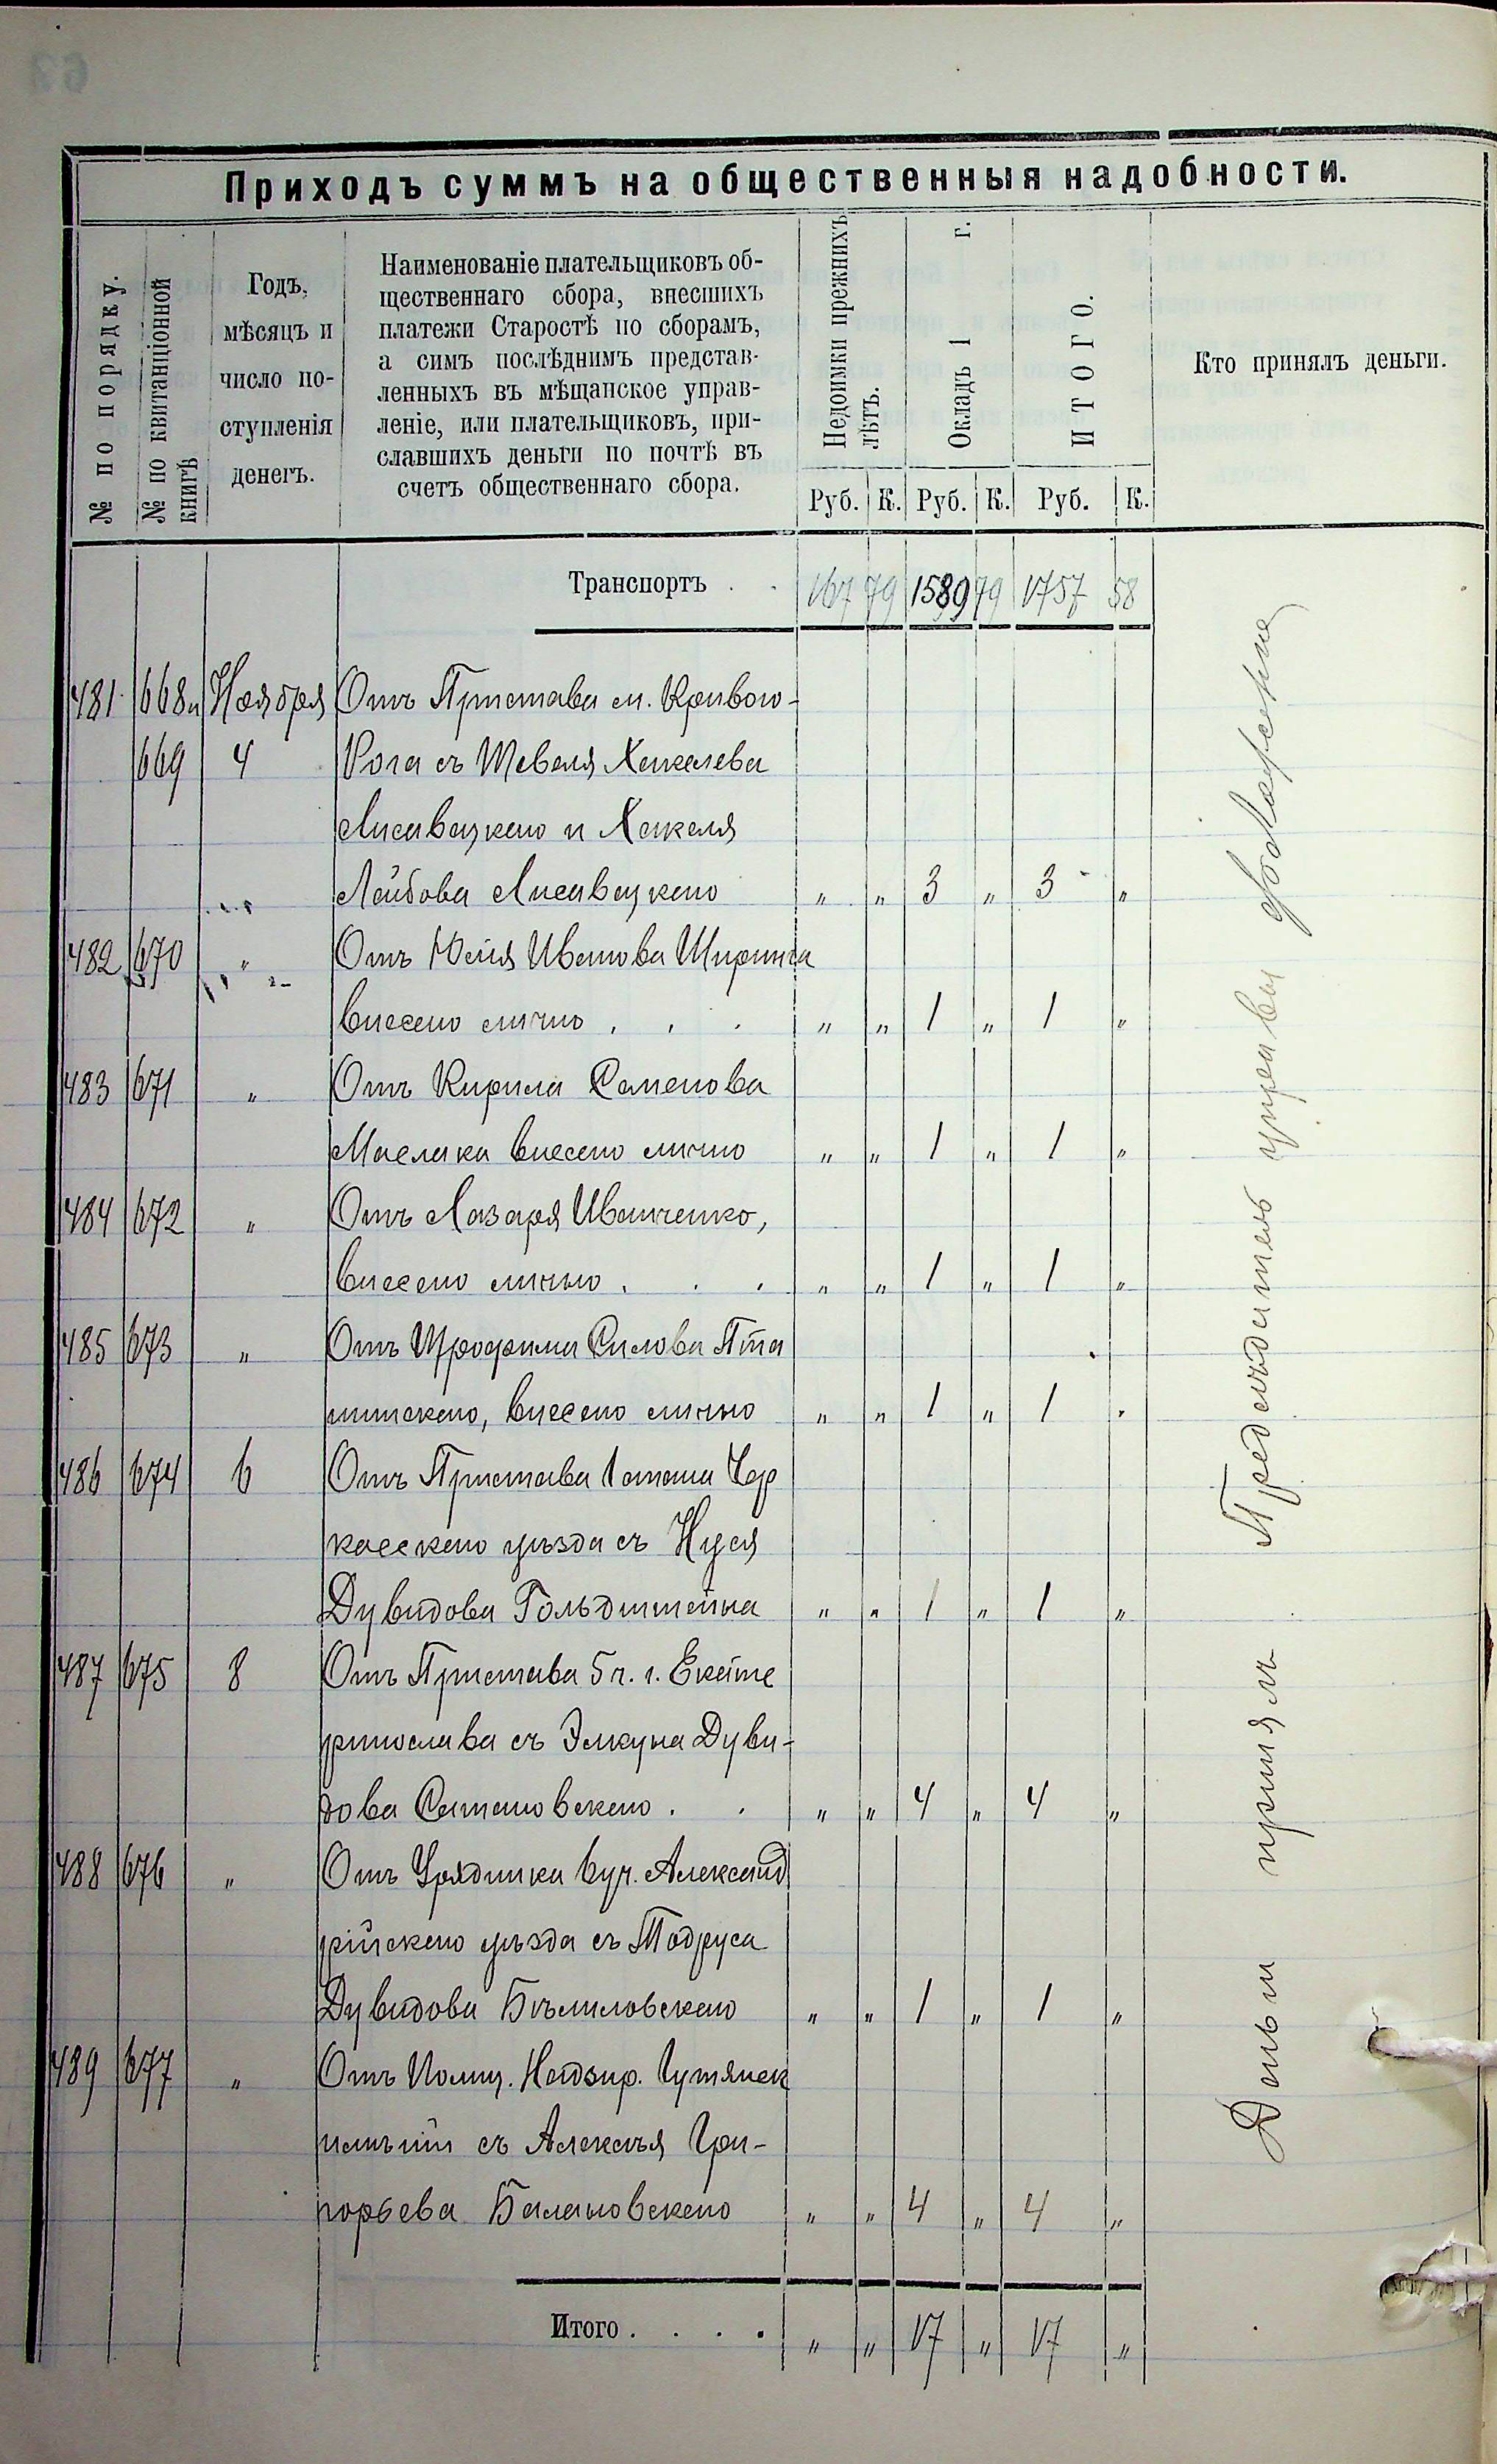 Приходъ суммъ на общественныя надобности.
№ по порядку.
№ по квитанціонной книгѣ
Годъ, мѣсяцъ и число поступленія денегъ.
Наименованіе плательщиковъ об-
щественнаго сбора, внесшихъ
платежи Старостѣ по сборамъ,
а симъ послѣднимъ представ-
ленныхъ въ мѣщанское управ-
леніе, или плательщиковъ, при-
славшихъ деньги по почтѣ въ
счетъ общественнаго сбора.
Недоимки прежнихъ лѣтъ.
Окладъ 1 г.
ИТОГО.
Кто принялъ деньги.
Руб. К. Руб. К. Руб. К.
Транспортъ . . 167 79 1589 79 1757 58
481 668 и Ноября Отъ Пристава м. Кривого-
669 4 Рога съ Шевеля Хакелева
Лисавецкаго и Хакеля
Лейбова Лисавецкаго „ „ 3 „ 3 „
482 670 „ Отъ Юлія Иванова
внесено лично . . . „ „ 1 „ 1 „
483 671 „ Отъ Кирила Семенова
Маслака внесено лично „ „ 1 „ 1 „
484 672 „ Отъ Лазаря Иванченко,
внесено лично . . . „ „ 1 „ 1 „
485 673 „ Отъ Трофима Силова Пта
шинскаго, внесено лично „ „ 1 „ 1 „
486 674 6 Отъ Пристава 1 стана Чер
касскаго уѣзда съ Нуся
Дувидова Гольдштейна „ „ 1 „ 1 „
487 675 8 Отъ Пристава 5 ч. г. Екате
ринослава съ Элкуна Дуви-
дова Сатановскаго . . „ „ 4 „ 4 „
488 676 „ Отъ Урядника 6 уч. Александ
рійскаго уѣзда съ Тодруса
Дувидова Бѣлиловскаго „ „ 1 „ 1 „
489 677 „ Отъ Полиц. Надзир. Гутянск
имѣній съ Алексѣя Гри-
горьева Балановскаго „ „ 4 „ 4 „
Итого . . . . „ „ 17 „ 17 „
Деньги принялъ Предсѣдатель управы